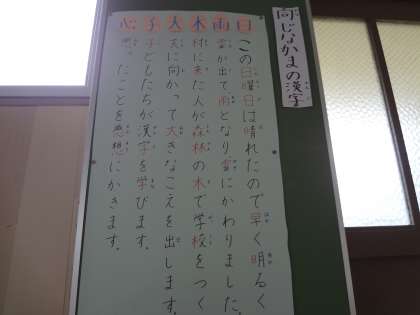 同じなかまの漢字
日 この日曜日は晴れたので早く明るく
雨 雲が出て雨となり雪にかわりました。
木 村に来た人が森林の木で学校をつく
大 天に向かって大きなこえを出します。
子 子どもたちが漢字を学びます。
心 思ったことを感想にかきます。